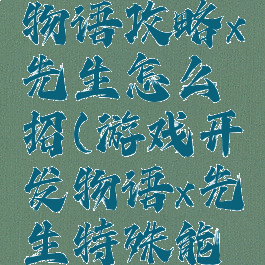 物语攻略x
先生怎么
招(游戏开
发物语x先
生特殊能